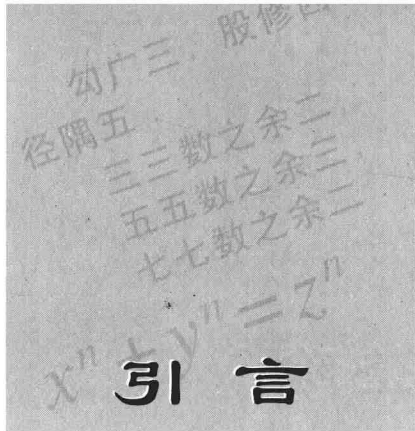 勾广三 股修四
径隅五
三三数之余二
五五数之余三
七七数之余二
xⁿ + yⁿ = zⁿ
引言